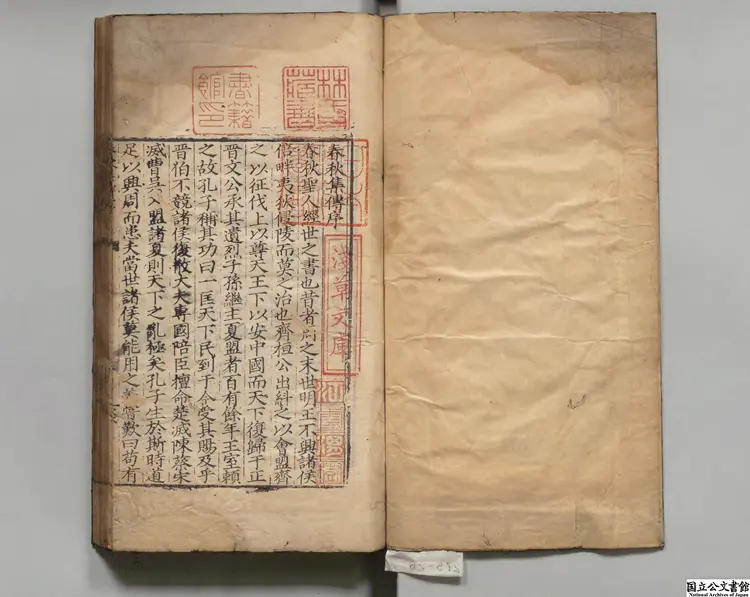 春秋集傳序
春秋聖人經世之書也昔者周之末世明王不興諸侯
倍畔夷狄侵陵而莫之治也齊桓公出糾之以會盟齊
之以征伐上以尊天王下以安中國而天下復歸于正
晉文公承其遺烈子孫繼主夏盟者百有餘年王室頼
之故孔子稱其功曰一匡天下民到于今受其賜及乎
晉伯不競諸侯復散大夫專國陪臣擅命楚滅陳蔡宋
滅曹吳入盟諸夏則天下之亂極矣孔子生於斯時道
足以興周而患夫當世諸侯莫能用之蓋嘗歎曰苟有
林氏藏書
書籍館印
淺草文庫
国立公文書館
National Archives of Japan